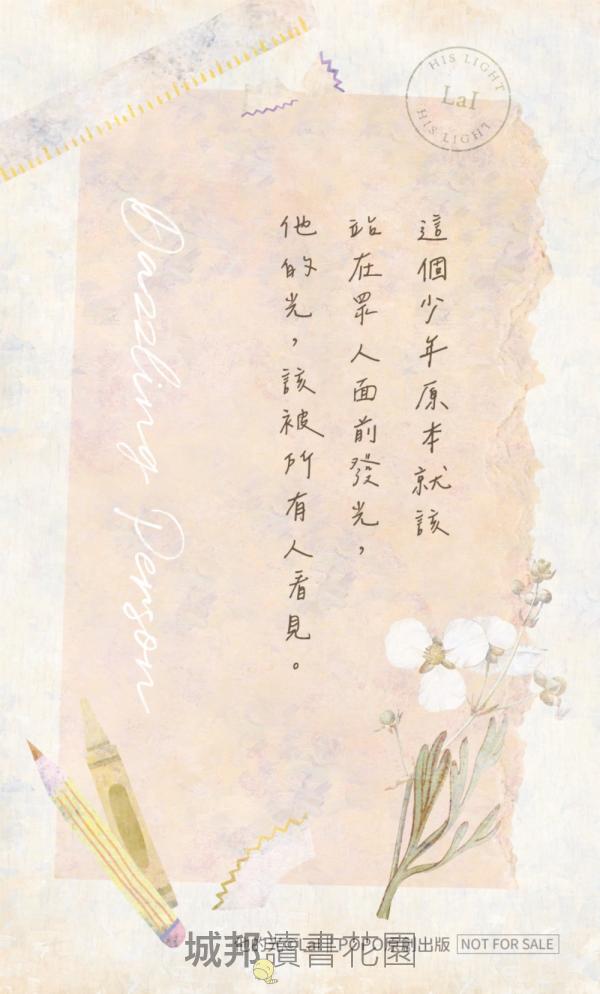 HIS LIGHT
LaI
HIS LIGHT
這個少年原本就該
站在眾人面前發光，
他的光，該被所有人看見。
Dazzling Person
他的光©LaI／POPO原創出版
NOT FOR SALE
城邦讀書花園